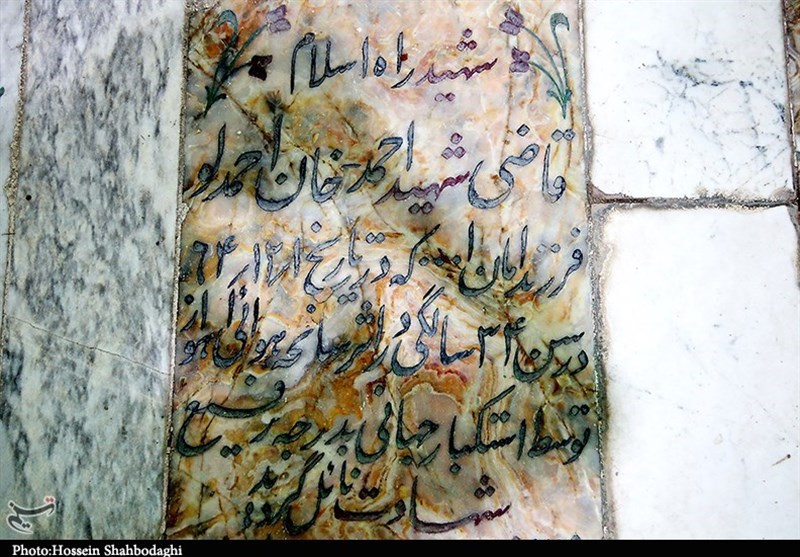 شهید راه اسلام
قاضی شهید احمد خان احمدلو
فرزند امان ا... که در تاریخ ۶۴/۱۲/۱
در سن ۳۴ سالگی در اثر سانحه هوائی اهواز
توسط استکبار جهانی بدرجه رفیع
شهادت نائل گردید
تسنیم
Photo:Hossein Shahbodaghi